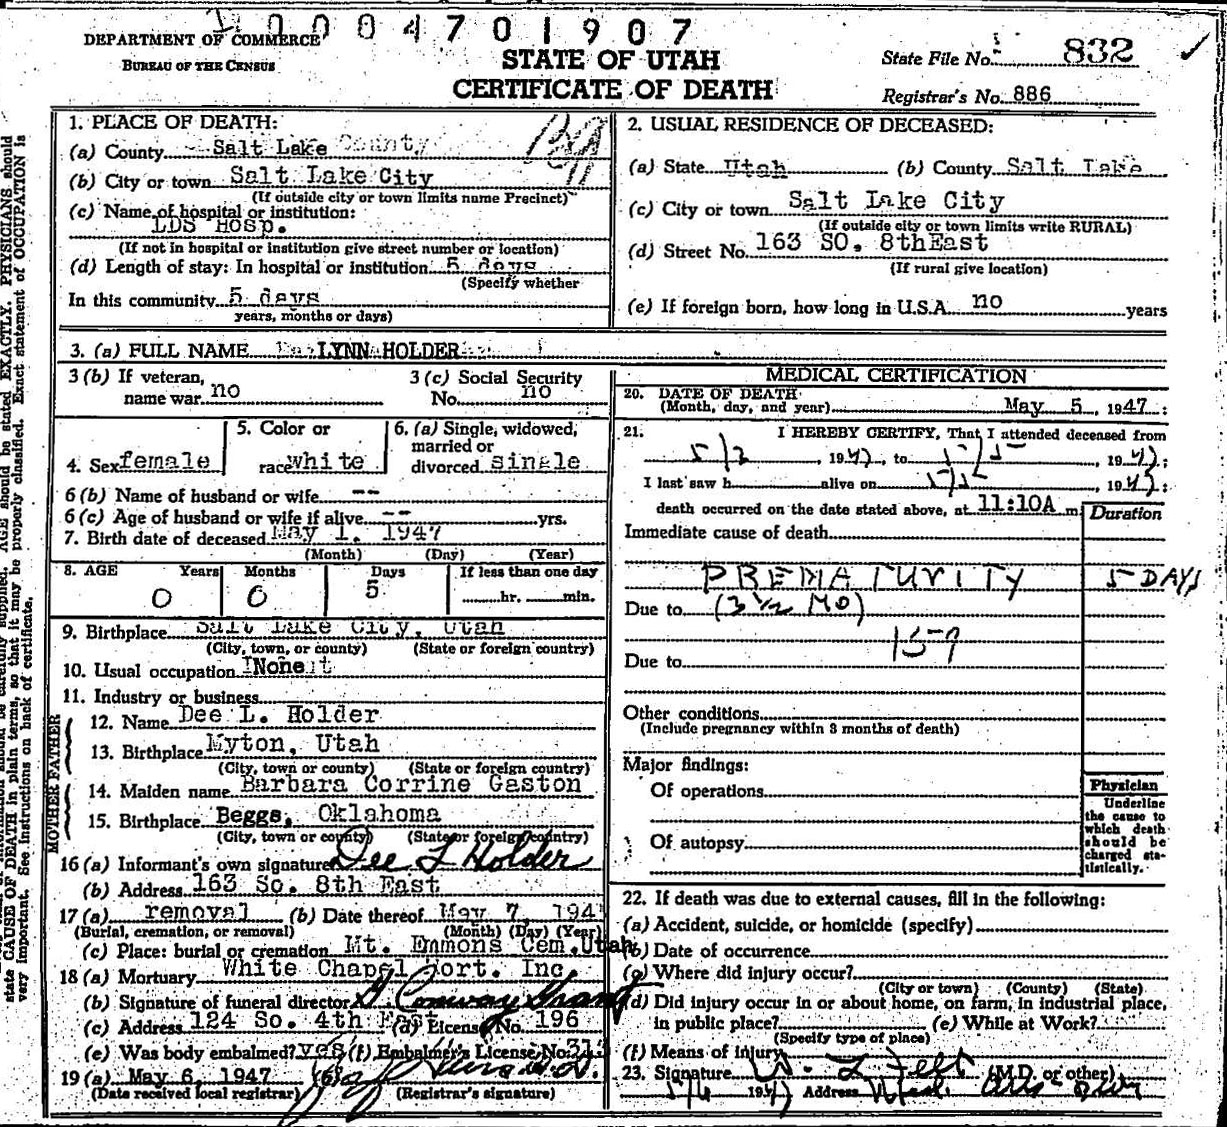 0004701907
DEPARTMENT OF COMMERCE
BUREAU OF THE CENSUS
STATE OF UTAH
CERTIFICATE OF DEATH
State File No. 832 ✓
Registrar's No. 886
1. PLACE OF DEATH:
(a) County Salt Lake County
(b) City or town Salt Lake City
(If outside city or town limits name Precinct)
(c) Name of hospital or institution:
LDS Hosp.
(If not in hospital or institution give street number or location)
(d) Length of stay: In hospital or institution 5 days
(Specify whether
In this community 5 days
years, months or days)
2. USUAL RESIDENCE OF DECEASED:
(a) State Utah (b) County Salt Lake
(c) City or town Salt Lake City
(If outside city or town limits write RURAL)
(d) Street No. 163 SO. 8thEast
(If rural give location)
(e) If foreign born, how long in U.S.A. no years
3. (a) FULL NAME LYNN HOLDER
3 (b) If veteran, name war. no
3 (c) Social Security No. no
4. Sex female
5. Color or race white
6. (a) Single, widowed, married or divorced single
6 (b) Name of husband or wife --
6 (c) Age of husband or wife if alive -- yrs.
7. Birth date of deceased May 1, 1947
(Month) (Day) (Year)
8. AGE Years Months Days If less than one day
0 0 5 hr. min.
9. Birthplace Salt Lake City, Utah
(City, town, or county) (State or foreign country)
10. Usual occupation None
11. Industry or business
FATHER
12. Name Dee L. Holder
13. Birthplace Myton, Utah
(City, town or county) (State or foreign country)
MOTHER
14. Maiden name Barbara Corrine Gaston
15. Birthplace Beggs, Oklahoma
(City, town or county) (State or foreign country)
16 (a) Informant's own signature Dee L Holder
(b) Address 163 So. 8th East
17 (a) removal (b) Date thereof May 7, 194
(Burial, cremation, or removal) (Month) (Day) (Year)
(c) Place: burial or cremation Mt. Emmons Cem. Utah
18 (a) Mortuary White Chapel Mort. Inc
(b) Signature of funeral director Conway Grant
(c) Address 124 So. 4th East (d) License No. 196
(e) Was body embalmed? yes (f) Embalmer's License No. 313
19 (a) May 6, 1947 (b)
(Date received local registrar) (Registrar's signature)
MEDICAL CERTIFICATION
20. DATE OF DEATH
(Month, day, and year) May 5, 1947
21. I HEREBY CERTIFY, That I attended deceased from
, 1947, to 5/5, 1947;
I last saw h alive on 5/5, 1947;
death occurred on the date stated above, at 11:10A m.
Duration
Immediate cause of death
PREMATURITY 5 DAYS
Due to (3 1/2 MO)
159
Due to
Other conditions
(Include pregnancy within 3 months of death)
Major findings:
Of operations
Of autopsy
Physician
Underline
the cause to
which death
should be
charged sta-
tistically.
22. If death was due to external causes, fill in the following:
(a) Accident, suicide, or homicide (specify)
(b) Date of occurrence
(c) Where did injury occur?
(City or town) (County) (State)
(d) Did injury occur in or about home, on farm, in industrial place,
in public place? (e) While at Work?
(Specify type of place)
(f) Means of injury
23. Signature (M.D. or other)
5/6 1947 Address Med. Arts
AGE should be stated EXACTLY. PHYSICIANS should
state CAUSE OF DEATH in plain terms, so that it may be properly classified. Exact statement of OCCUPATION is
very important. See instructions on back of certificate.